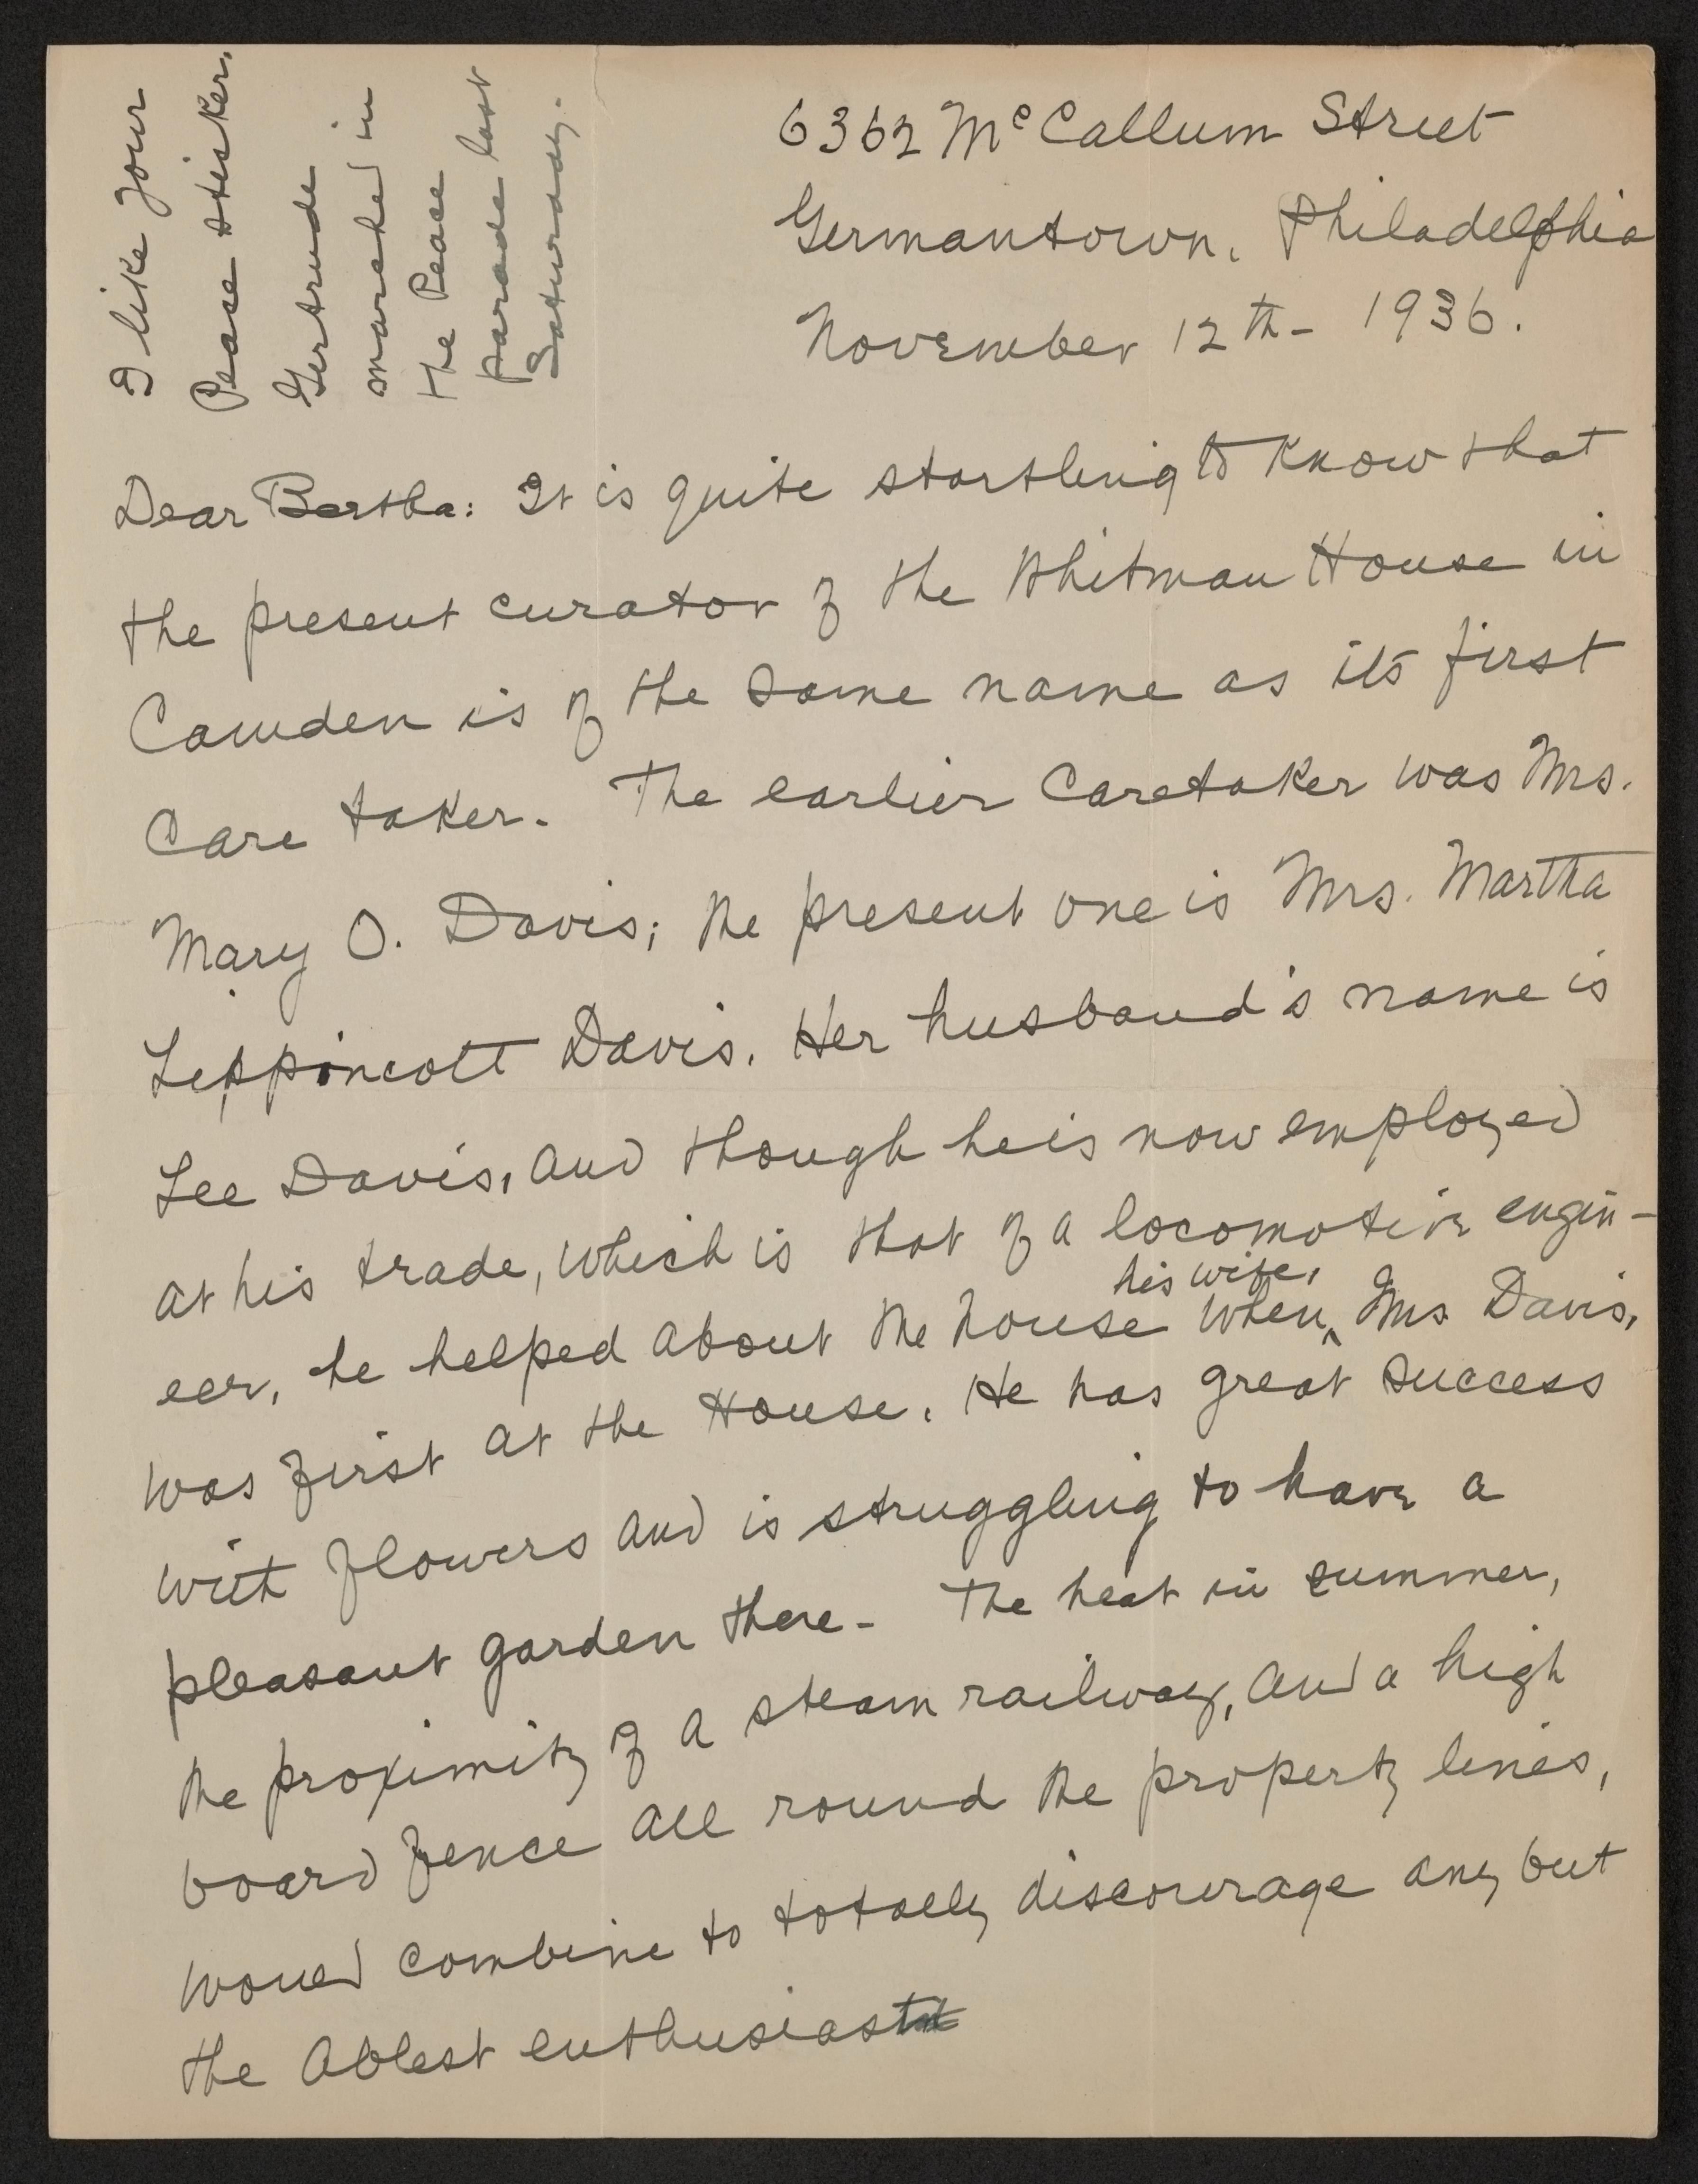 I like your
Peace sticker.
Gertrude
marched in
the Peace
parade last
Saturday.
6362 McCallum Street
Germantown, Philadelphia
November 12th - 1936.
Dear Bertha: It is quite startling to know that
the present curator of the Whitman House in
Camden is of the same name as its first
Care taker. The earlier Caretaker was Mrs.
Mary O. Davis; the present one is Mrs. Martha
Lippincott Davis. Her husband's name is
Lee Davis, and though he is now employed
at his trade, which is that of a locomotive engin-
his wife,
eer, he helped about the house when ‸ Mrs Davis,
was first at the House. He has great success
with flowers and is struggling to have a
pleasant garden there - The heat in summer,
the proximity of a steam railway, and a high
board fence all round the property lines,
would combine to totally discourage any but
the Ablest enthusiast